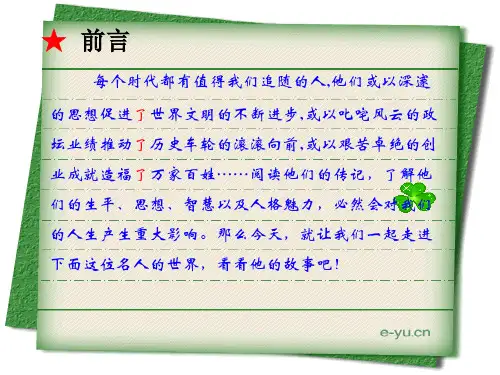 ★ 前言
每个时代都有值得我们追随的人,他们或以深邃
的思想促进了世界文明的不断进步,或以叱咤风云的政
坛业绩推动了历史车轮的滚滚向前,或以艰苦卓绝的创
业成就造福了万家百姓……阅读他们的传记，了解他
们的生平、思想、智慧以及人格魅力，必然会对我们
的人生产生重大影响。那么今天，就让我们一起走进
下面这位名人的世界，看看他的故事吧!
e-yu.cn